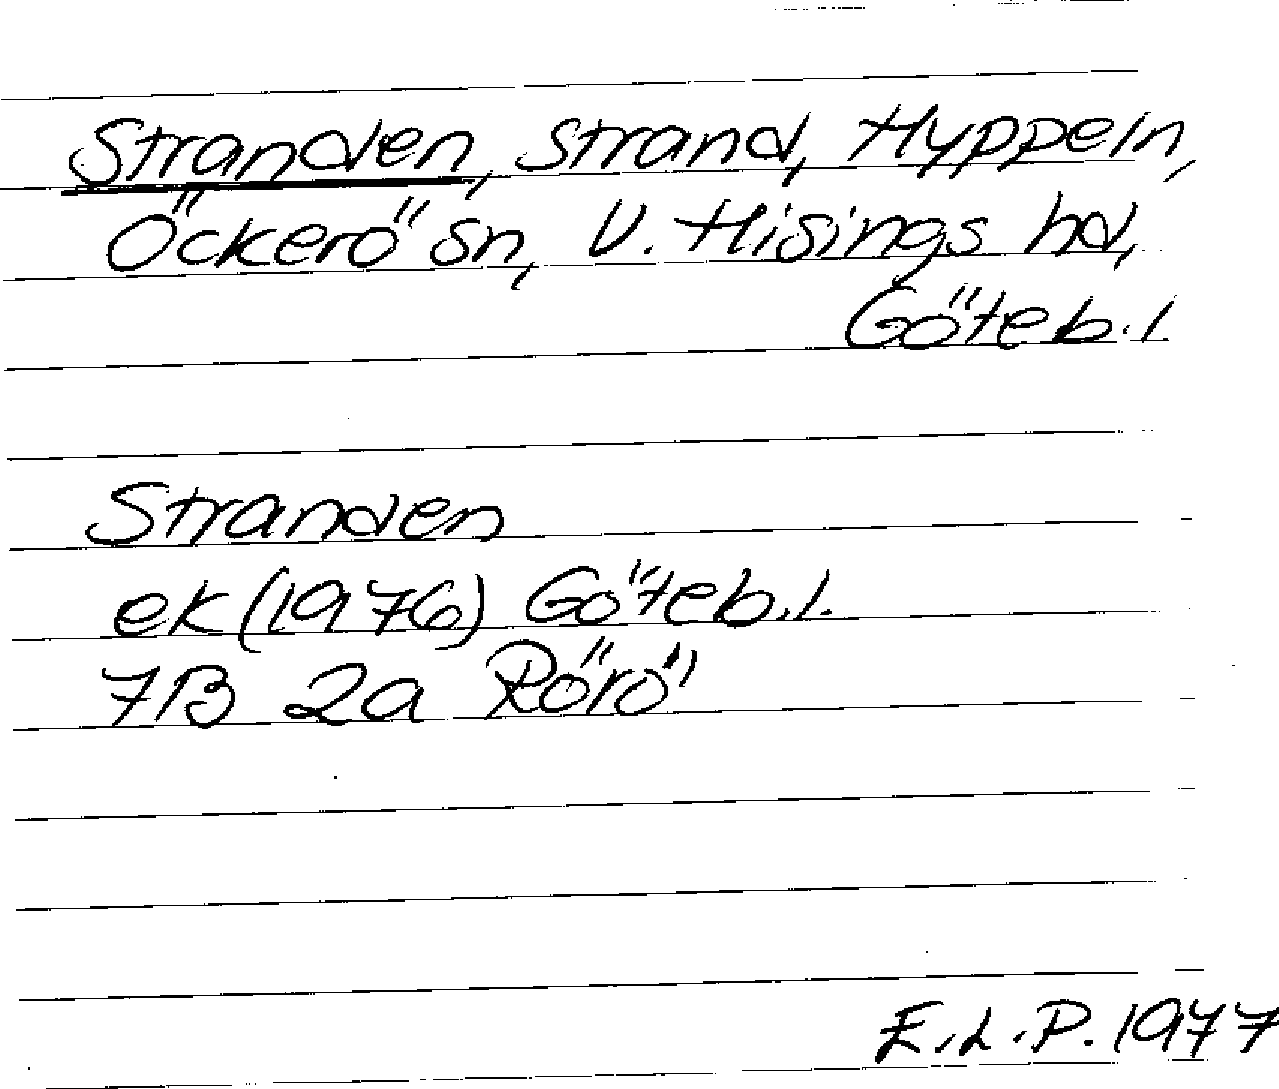 Stranden, strand, Hyppeln,
Öckerö sn, V. Hisings hd,
Göteb. l.
Stranden
ek (1976) Göteb. l.
7B 2a Rörö
E.L.P. 1977